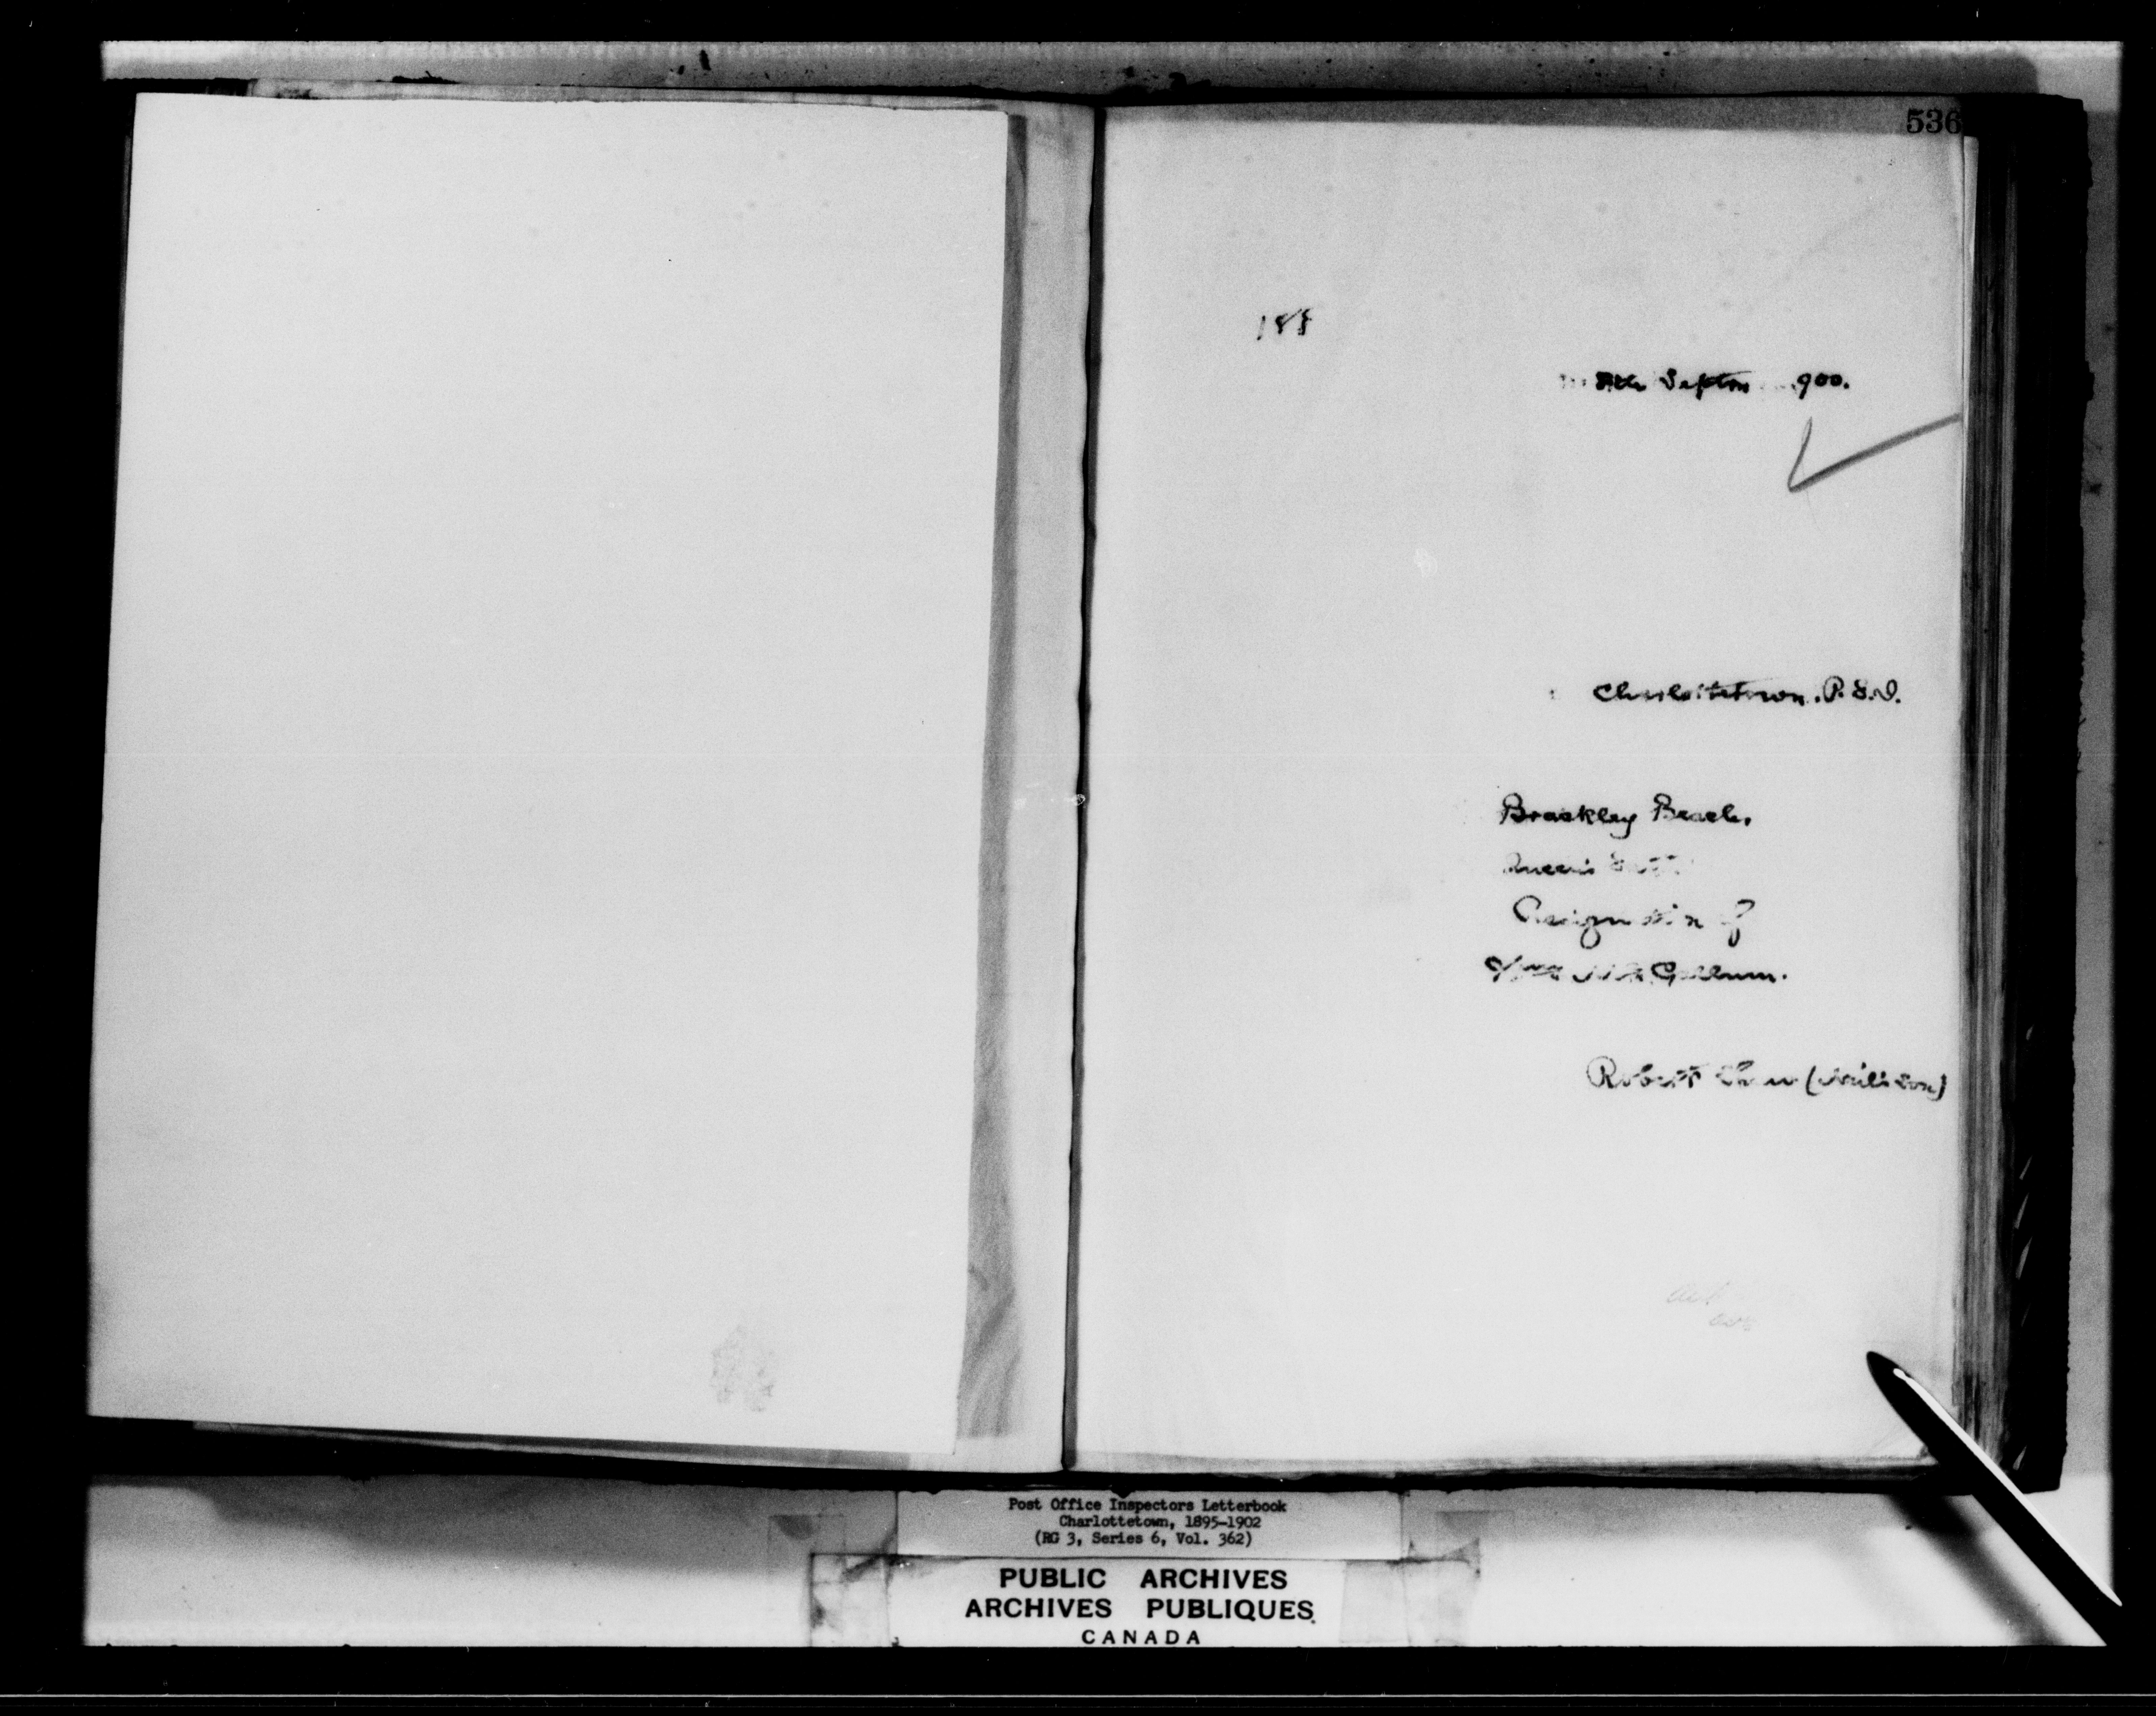 536
188
8th Septem 900.
Charlottetown. P.E.I.
Brackley Beach,
Queen's
Resignation of
McCallum.
Robert Shaw (Neil's son)
Post Office Inspectors Letterbook
Charlottetown, 1895-1902
(RG 3, Series 6, Vol. 362)
PUBLIC ARCHIVES
ARCHIVES PUBLIQUES
CANADA